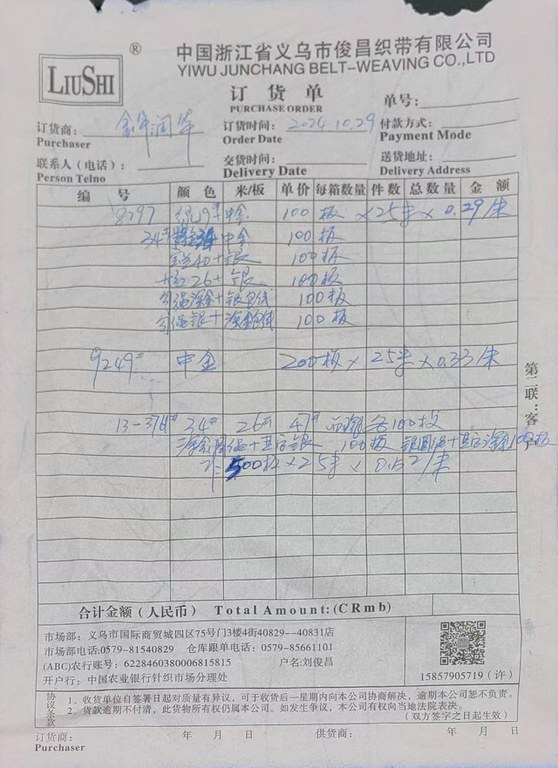 LIUSHI ®
中国浙江省义乌市俊昌织带有限公司
YIWU JUNCHANG BELT-WEAVING CO.,LTD
订货单
PURCHASE ORDER
单号:
订货商:
Purchaser
订货时间: 2024.10.29
Order Date
付款方式:
Payment Mode
联系人(电话):
Person Telno
交货时间:
Delivery Date
送货地址:
Delivery Address
编 号 颜 色 米/板 单价 每箱数量 件数 总数量 金 额
8297 中金 100板 ×25米×0.29/米
34# 中金 100板
40+银 100板
26+银 100板
100板
100板
9249# 中金 200板×25米×0.33/米
13-37# 34# 26# 47# 各100板
100板
500板×25米×0.52/米
第二联:客
合计金额(人民币) Total Amount:(CRmb)
市场部: 义乌市国际商贸城四区75号门3楼4街40829--40831店
市场部电话:0579-81540829 仓库跟单电话:0579-85661101
(ABC)农行账号: 6228460380006815815 户名:刘俊昌
开户行: 中国农业银行针织市场分理处
15857905719(许)
协议条款
1、收货单位自签署日起对质量有异议,可于收货后一星期内向本公司协商解决,逾期本公司恕不负责。
2、货款逾期不付清,此货物所有权仍属本公司。如发生争议,本公司有权向当地法院表决。
(双方签字之日起生效)
订货商: 年 月 日 供货商: 年 月 日
Purchaser